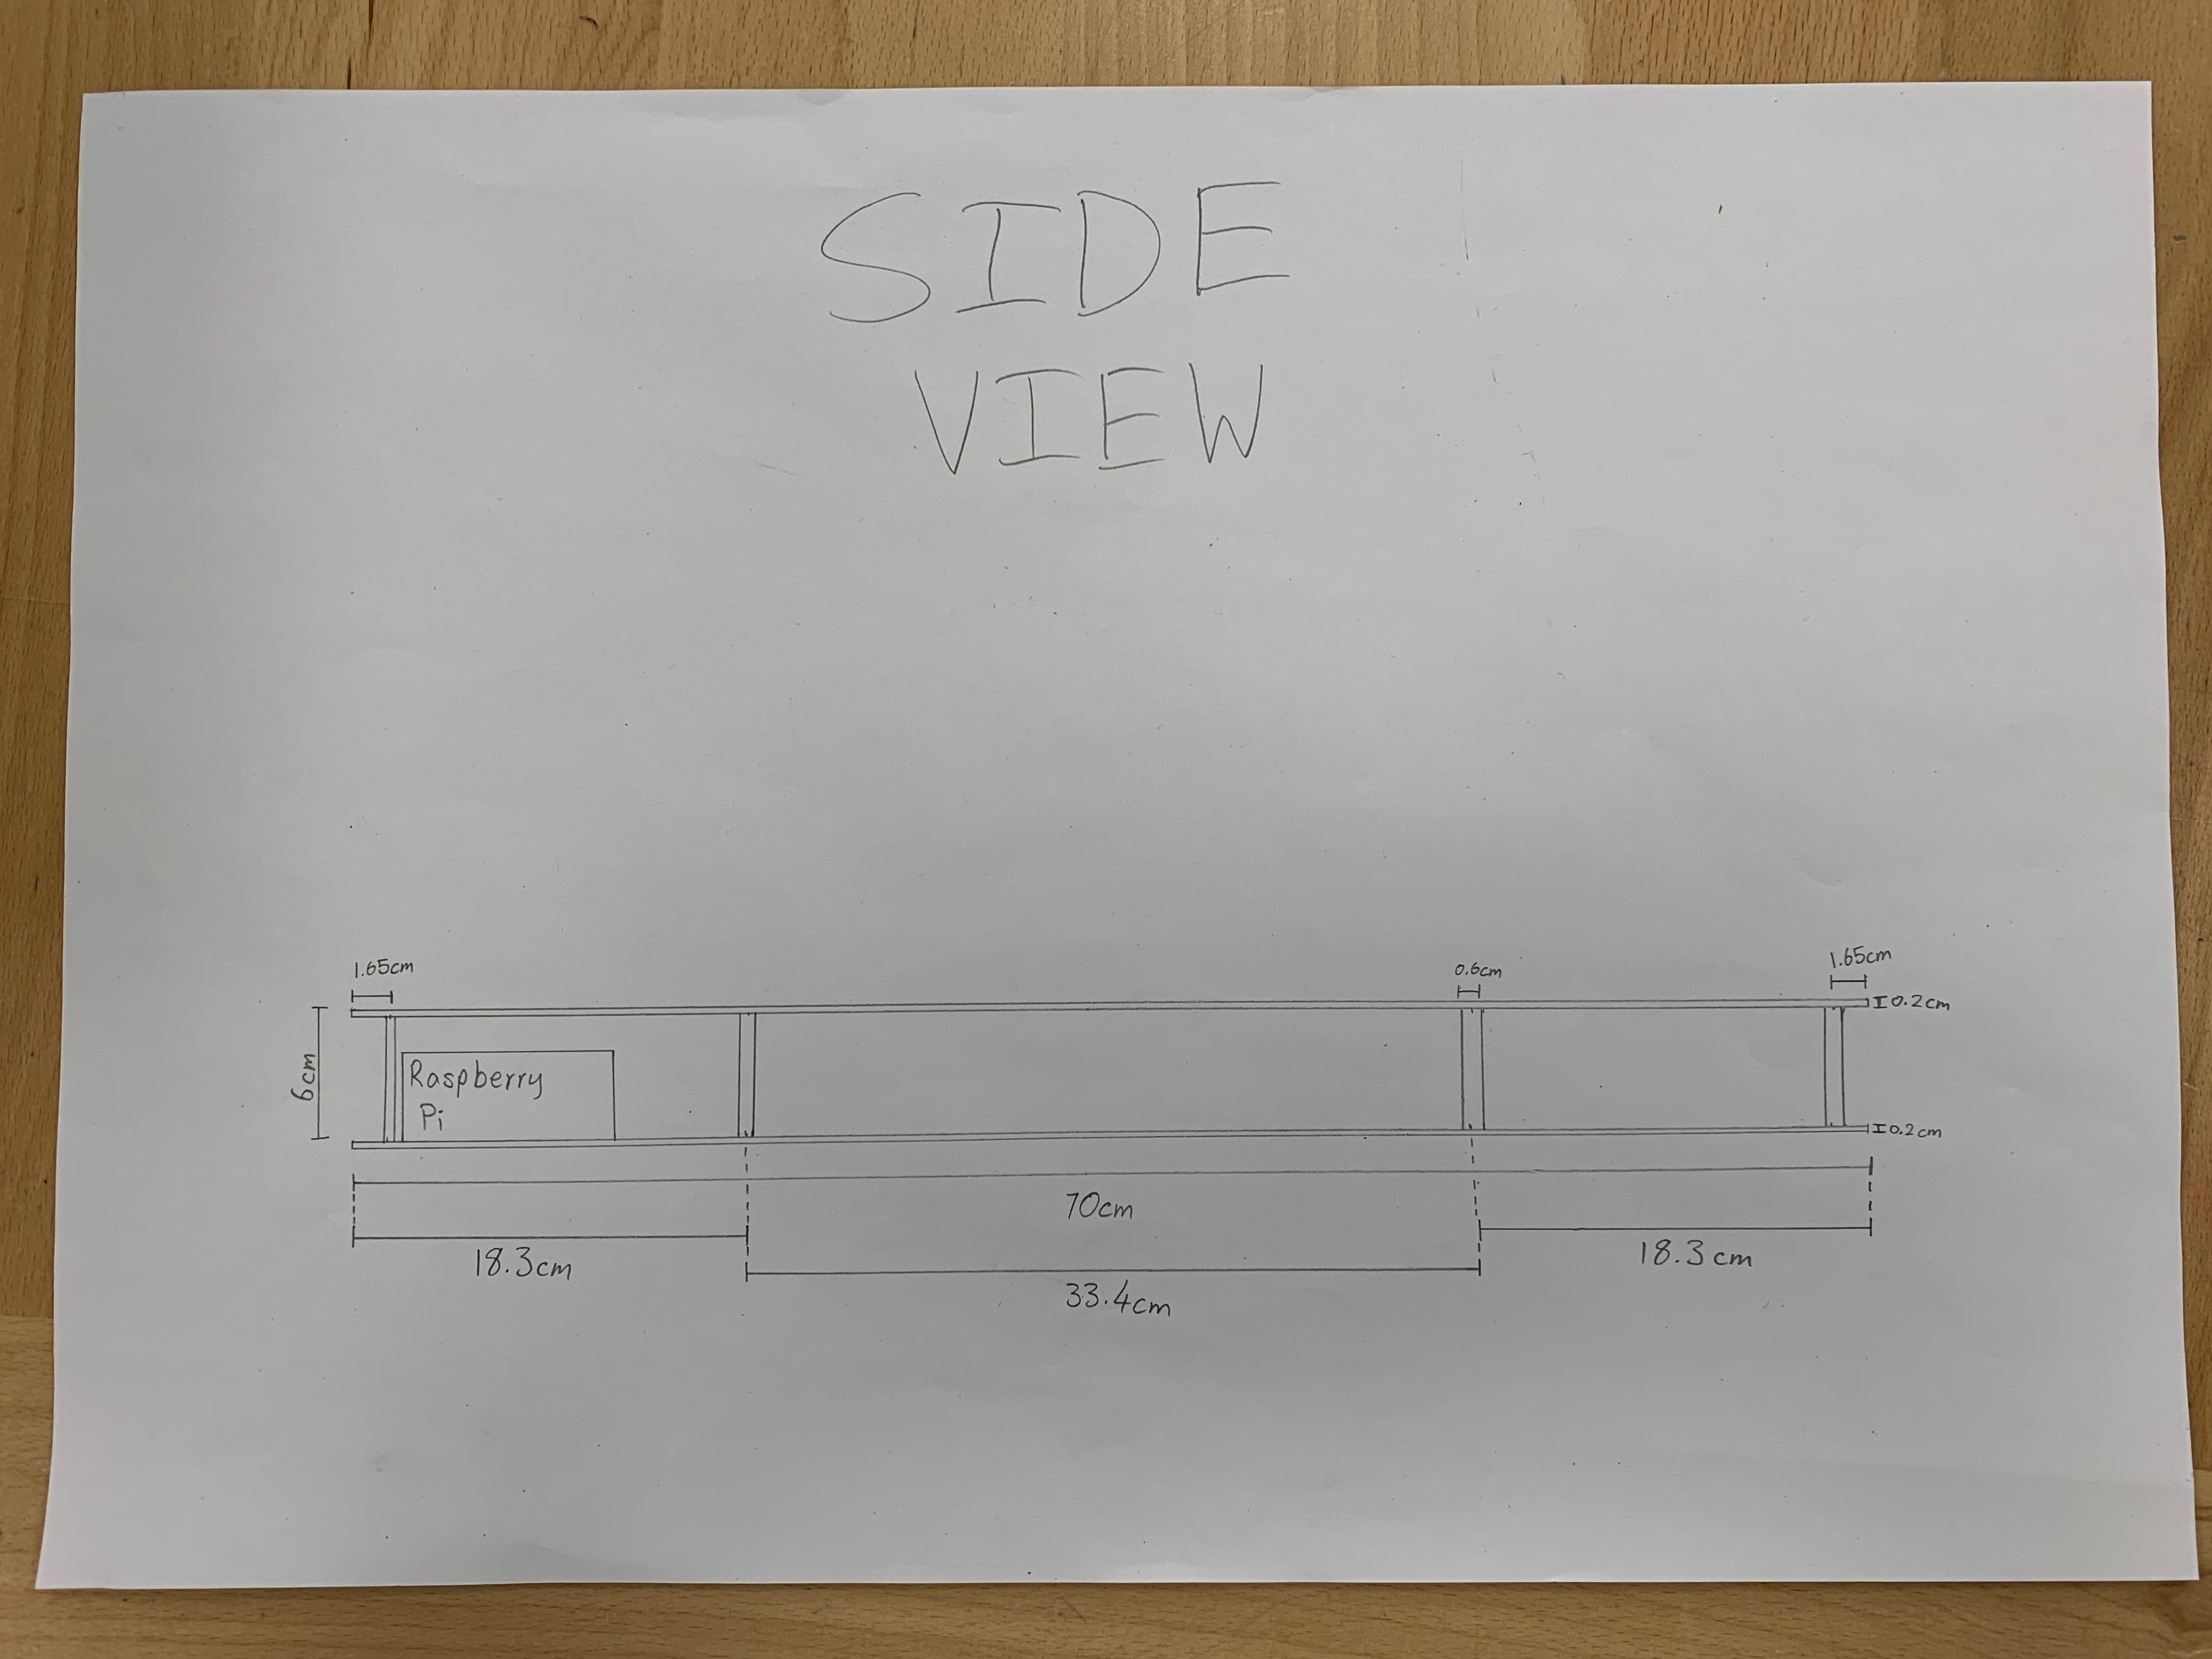 SIDE
VIEW
1.65cm
0.6cm
1.65cm
0.2cm
6cm
Raspberry
Pi
0.2cm
70cm
18.3cm
18.3cm
33.4cm